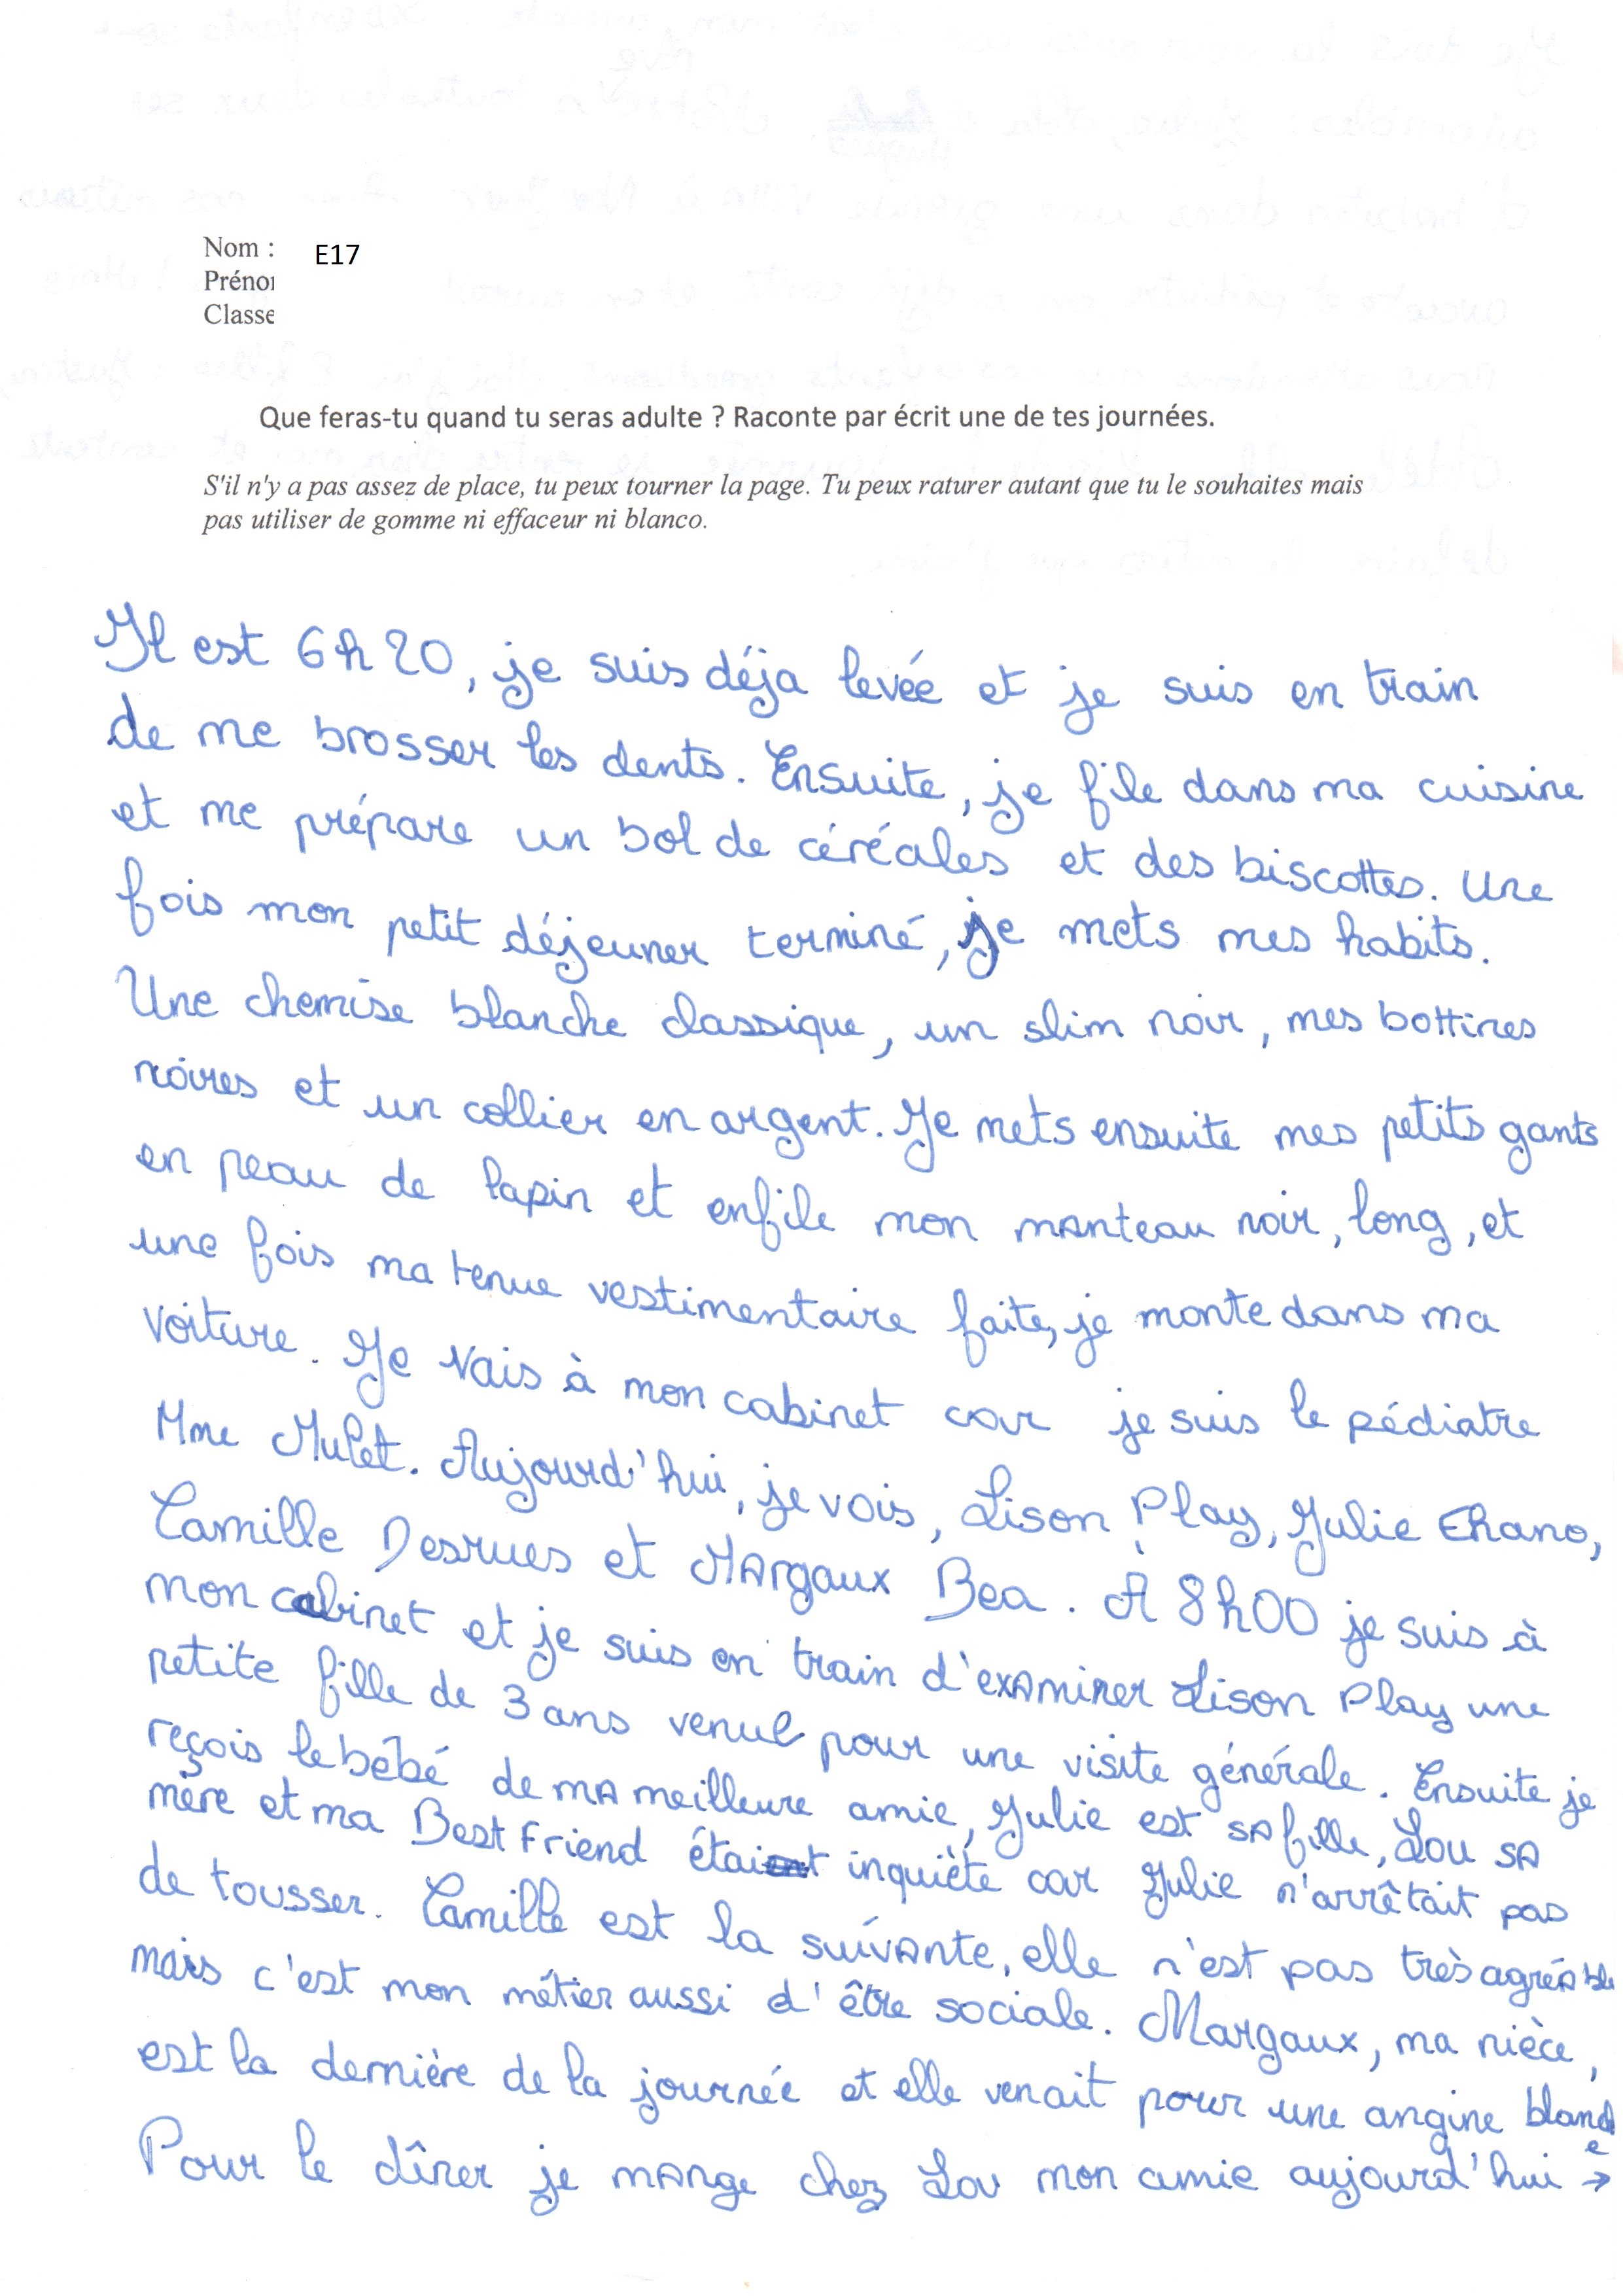 Nom : E17
Prénom
Classe
Que feras-tu quand tu seras adulte ? Raconte par écrit une de tes journées.
S'il n'y a pas assez de place, tu peux tourner la page. Tu peux raturer autant que tu le souhaites mais
pas utiliser de gomme ni effaceur ni blanco.
Il est 6h20, je suis déja levée et je suis en train
de me brosser les dents. Ensuite, je file dans ma cuisine
et me prépare un bol de céréales et des biscottes. Une
fois mon petit déjeuner terminé, je mets mes habits.
Une chemise blanche classique, un slim noir, mes bottines
noires et un collier en argent. Je mets ensuite mes petits gants
en peau de lapin et enfile mon manteau noir, long, et
une fois ma tenue vestimentaire faite, je monte dans ma
voiture. Je vais à mon cabinet car je suis le pédiatre
Mme Mulet. Aujourd'hui, je vois, Lison Play, Julie Ehano,
Camille Desrues et Margaux Bea. À 8h00 je suis à
mon cabinet et je suis en train d'examiner Lison Play une
petite fille de 3 ans venue pour une visite générale. Ensuite je
reçois le bébé de ma meilleure amie, Julie est sa fille, Lou sa
mère et ma Best Friend était inquiète car Julie n'arrêtait pas
de tousser. Camille est la suivante, elle n'est pas très agréable
mais c'est mon métier aussi d'être sociale. Margaux, ma nièce,
est la dernière de la journée et elle venait pour une angine blanche
Pour le dîner je mange chez Lou mon amie aujourd'hui →